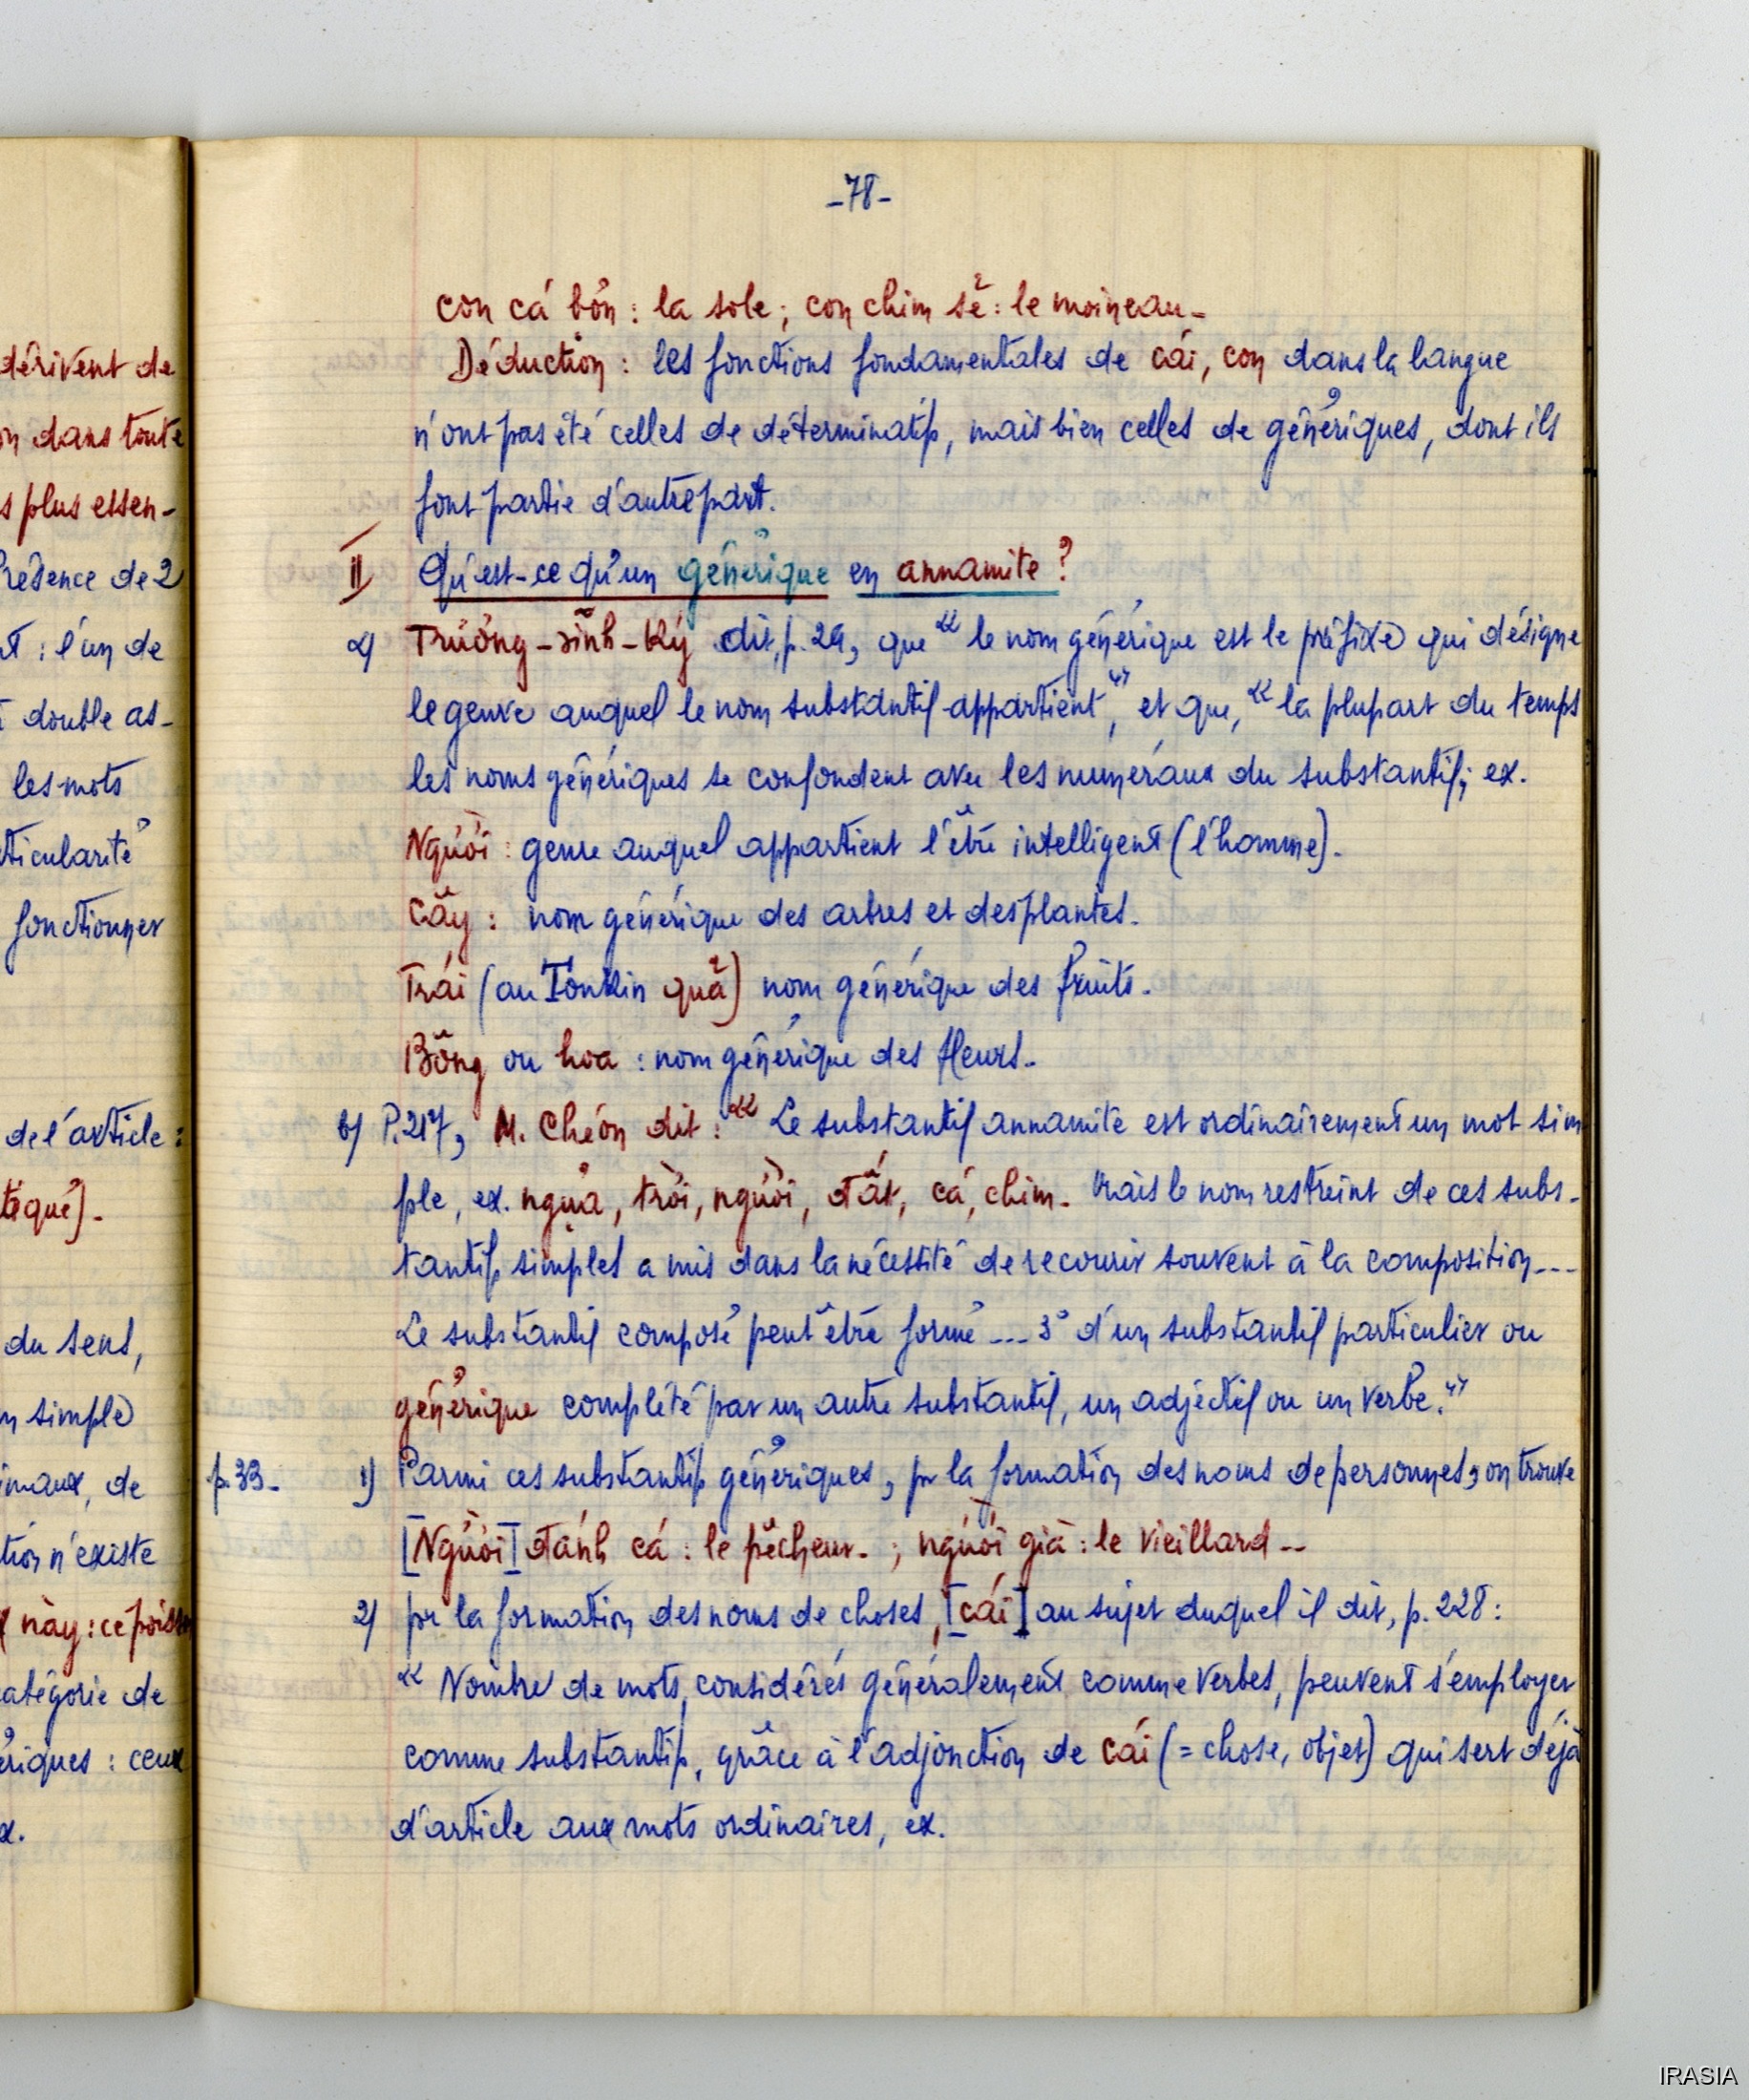 dérivent de
dans toute
s plus essen-
Présence de 2
: l'un de
double as-
les mots
ticularité
fonctionner
de l'article :
tiqué).
du sens,
simple
imaux, de
tion n'existe
này : ce poisson
catégorie de
ériques : ceux
x.
-78-
con cá bơn : la sole ; con chim sẻ : le moineau_
Déduction : les fonctions fondamentales de cái, con dans la langue
n'ont pas été celles de déterminatifs, mais bien celles de génériques, dont ils
font partie d'autre part.
II Qu'est-ce qu'un générique en annamite ?
a) Trương-sinh-Ký dit, p. 29, que « le nom générique est le préfixe qui désigne
le genre auquel le nom substantif appartient », et que, « la plupart du temps
les noms génériques se confondent avec les numéraux du substantif ; ex.
Người : genre auquel appartient l'être intelligent (l'homme).
Cây : nom générique des arbres et des plantes.
Trái (au Tonkin quả) nom générique des fruits.
Bông ou hoa : nom générique des fleurs.
b) P. 217, M. Chéon dit : « Le substantif annamite est ordinairement un mot sim
ple, ex. ngựa, trời, người, đất, cá, chim. Mais le nom restreint de ces subs-
tantifs simples a mis dans la nécessité de recourir souvent à la composition...
Le substantif composé peut être formé ... 3° d'un substantif particulier ou
générique complété par un autre substantif, un adjectif ou un verbe. »
p. 33_ 1) Parmi ces substantifs génériques, pr la formation des noms de personnes, on trouve
[Người] đánh cá : le pêcheur. ; người già : le vieillard --
2) pr la formation des noms de choses, [cái] au sujet duquel il dit, p. 228 :
« Nombre de mots, considérés généralement comme verbes, peuvent s'employer
comme substantifs, grâce à l'adjonction de cái (= chose, objet) qui sert déjà
d'article aux mots ordinaires, ex.
IRASIA